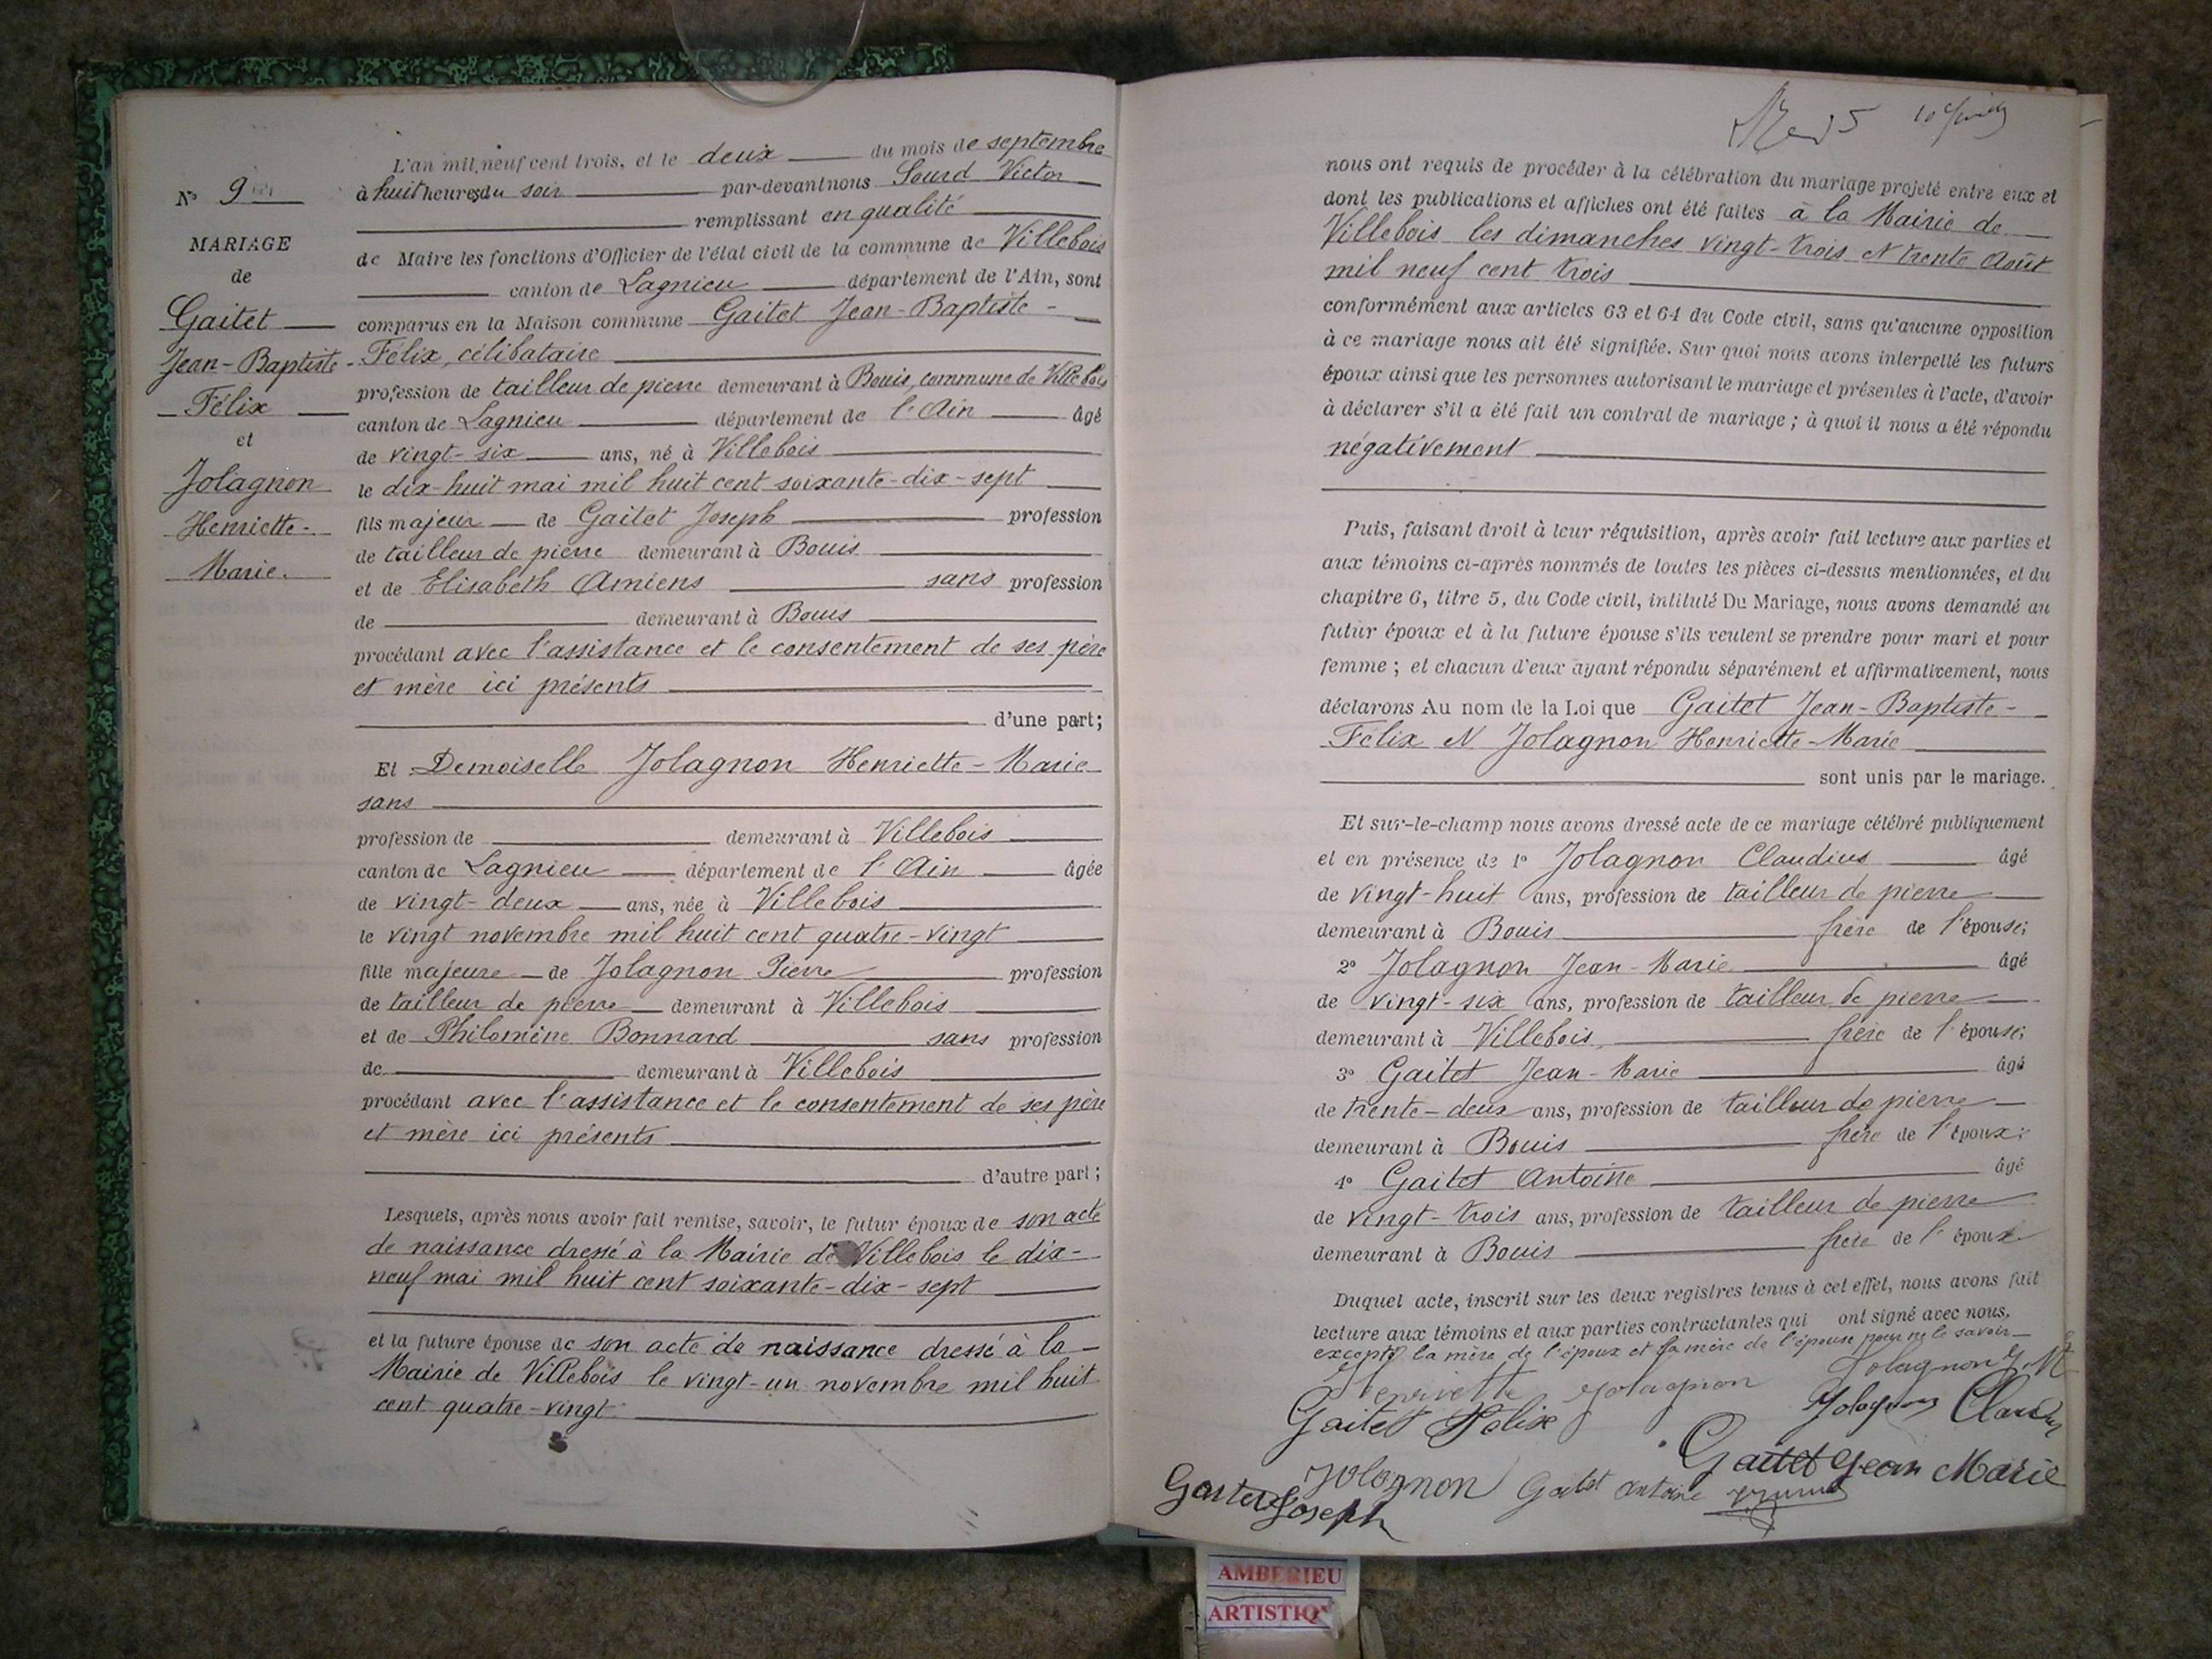 L'an mil neuf cent trois, et le deux du mois de septembre
à huit heures du soir par-devant nous Sourd Victor
remplissant en qualité
de Maire les fonctions d'Officier de l'état civil de la commune de Villebois
canton de Lagnieu département de l'Ain, sont
comparus en la Maison commune Gaitet Jean-Baptiste-
Félix, célibataire
profession de tailleur de pierre demeurant à Bouis, commune de Villebois
canton de Lagnieu département de l'Ain âgé
de vingt-six ans, né à Villebois
le dix-huit mai mil huit cent soixante-dix-sept
fils majeur de Gaitet Joseph profession
de tailleur de pierre demeurant à Bouis
et de Elisabeth Amiens sans profession
de demeurant à Bouis
procédant avec l'assistance et le consentement de ses père
et mère ici présents
d'une part;
Et Demoiselle Jolagnon Henriette-Marie
sans
profession de demeurant à Villebois
canton de Lagnieu département de l'Ain âgée
de vingt-deux ans, née à Villebois
le vingt novembre mil huit cent quatre-vingt
fille majeure de Jolagnon Pierre profession
de tailleur de pierre demeurant à Villebois
et de Philomène Bonnard sans profession
de demeurant à Villebois
procédant avec l'assistance et le consentement de ses père
et mère ici présents
d'autre part;
Lesquels, après nous avoir fait remise, savoir, le futur époux de son acte
de naissance dressé à la Mairie de Villebois le dix-
neuf mai mil huit cent soixante-dix-sept
et la future épouse de son acte de naissance dressé à la
Mairie de Villebois le vingt-un novembre mil huit
cent quatre-vingt
N° 9
MARIAGE
de
Gaitet
Jean-Baptiste-
Félix
et
Jolagnon
Henriette-
Marie.
nous ont requis de procéder à la célébration du mariage projeté entre eux et
dont les publications et affiches ont été faites à la Mairie de
Villebois les dimanches vingt-trois et trente Août
mil neuf cent trois
conformément aux articles 63 et 64 du Code civil, sans qu'aucune opposition
à ce mariage nous ait été signifiée. Sur quoi nous avons interpellé les futurs
époux ainsi que les personnes autorisant le mariage et présentes à l'acte, d'avoir
à déclarer s'il a été fait un contrat de mariage; à quoi il nous a été répondu
négativement
Puis, faisant droit à leur réquisition, après avoir fait lecture aux parties et
aux témoins ci-après nommés de toutes les pièces ci-dessus mentionnées, et du
chapitre 6, titre 5, du Code civil, intitulé Du Mariage, nous avons demandé au
futur époux et à la future épouse s'ils veulent se prendre pour mari et pour
femme; et chacun d'eux ayant répondu séparément et affirmativement, nous
déclarons Au nom de la Loi que Gaitet Jean-Baptiste-
Félix et Jolagnon Henriette-Marie
sont unis par le mariage.
Et sur-le-champ nous avons dressé acte de ce mariage célébré publiquement
et en présence de 1° Jolagnon Claudius âgé
de vingt-huit ans, profession de tailleur de pierre
demeurant à Bouis frère de l'épouse;
2° Jolagnon Jean-Marie âgé
de vingt-six ans, profession de tailleur de pierre
demeurant à Villebois, frère de l'épouse;
3° Gaitet Jean-Marie âgé
de trente-deux ans, profession de tailleur de pierre
demeurant à Bouis frère de l'époux;
4° Gaitet Antoine âgé
de vingt-trois ans, profession de tailleur de pierre
demeurant à Bouis frère de l'époux
Duquel acte, inscrit sur les deux registres tenus à cet effet, nous avons fait
lecture aux témoins et aux parties contractantes qui ont signé avec nous,
excepté la mère de l'époux et la mère de l'épouse pour ne le savoir
Henriette Jolagnon Jolagnon J M
Gaitet Félix Jolagnon Claudius
Gaitet Jean Marie
Jolagnon Gaitet Antoine
Gaitet Joseph
AMBERIEU
ARTISTIQ